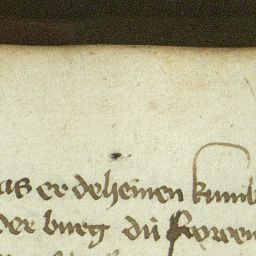 as er deheinen kumb
der burg dü frowen